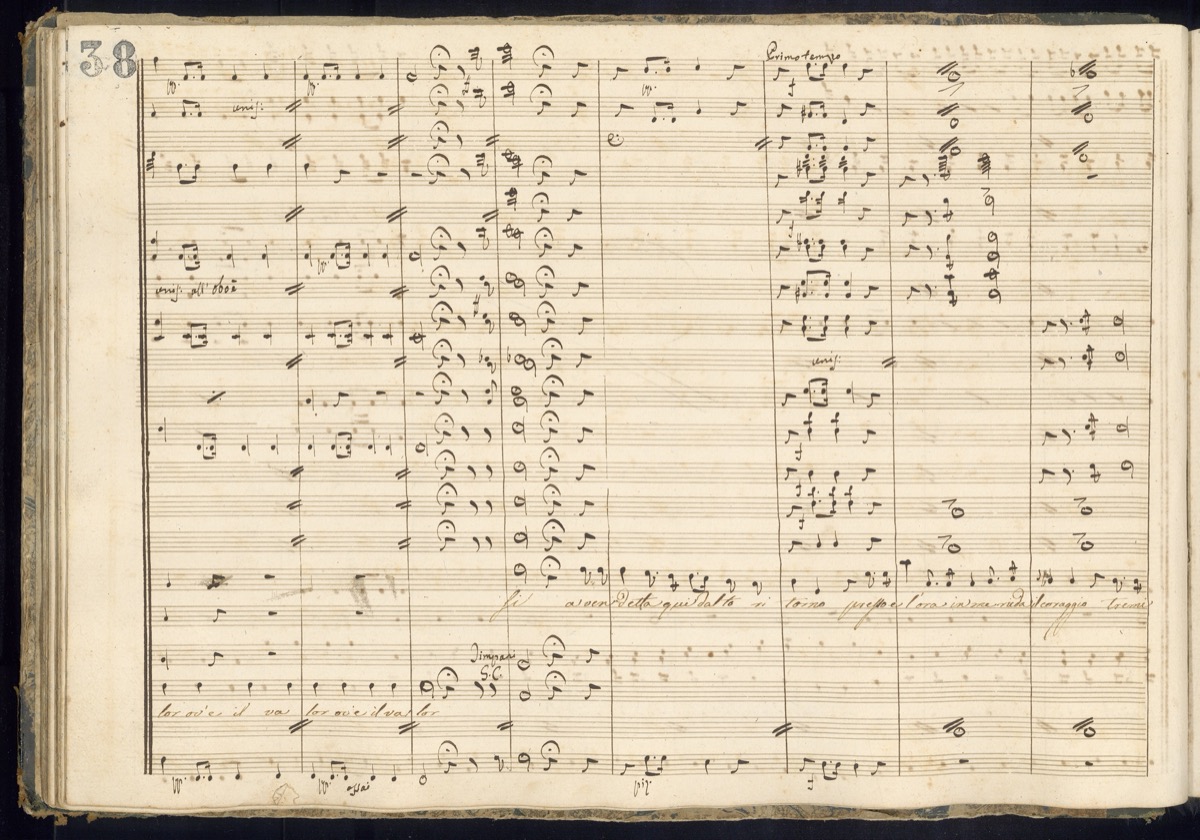 38
Primo tempo
unis:
unis: all' oboe
unis:
Si a vendetta qui dal to ri torno presso è l'ora in me rieda il coraggio treme
Timpani
G.C.
lor ov'è il va lor ov'è il va lor
assai
piz: